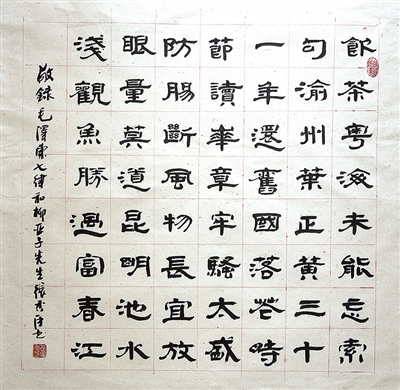 飲茶粵海未能忘索
句渝州葉正黃三十
一年還舊國落花時
節讀華章牢騷太盛
防腸斷風物長宜放
眼量莫道昆明池水
淺觀魚勝過富春江
敬錄毛澤東七律和柳亞子先生